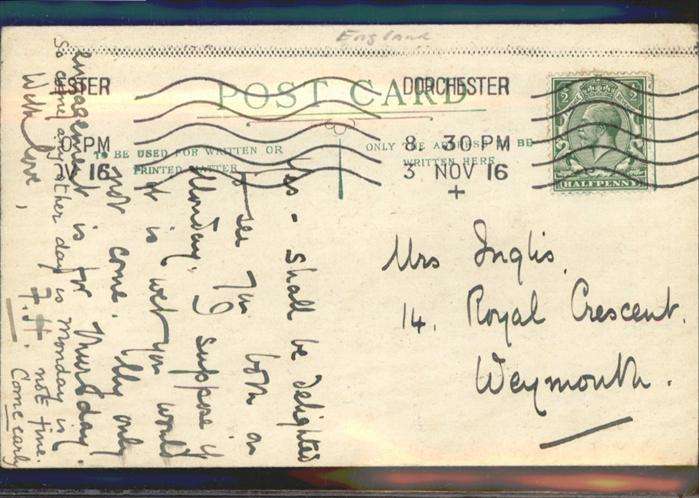 England
POST CARD
TO BE USED FOR WRITTEN OR
PRINTED MATTER
ONLY THE ADDRESS TO BE
WRITTEN HERE
ESTER
0 PM
OV 16
DORCHESTER
8. 30 PM
3 NOV 16
HALFPENNY
Mrs Inglis.
14. Royal Crescent.
Weymouth.
Yes - shall be delighted
to see you both on
Monday. I suppose if
it is wet you would
not come. My only
engagement is for Thursday.
So come any other day is Monday is
not fine.
With love,
F.H.
Come early